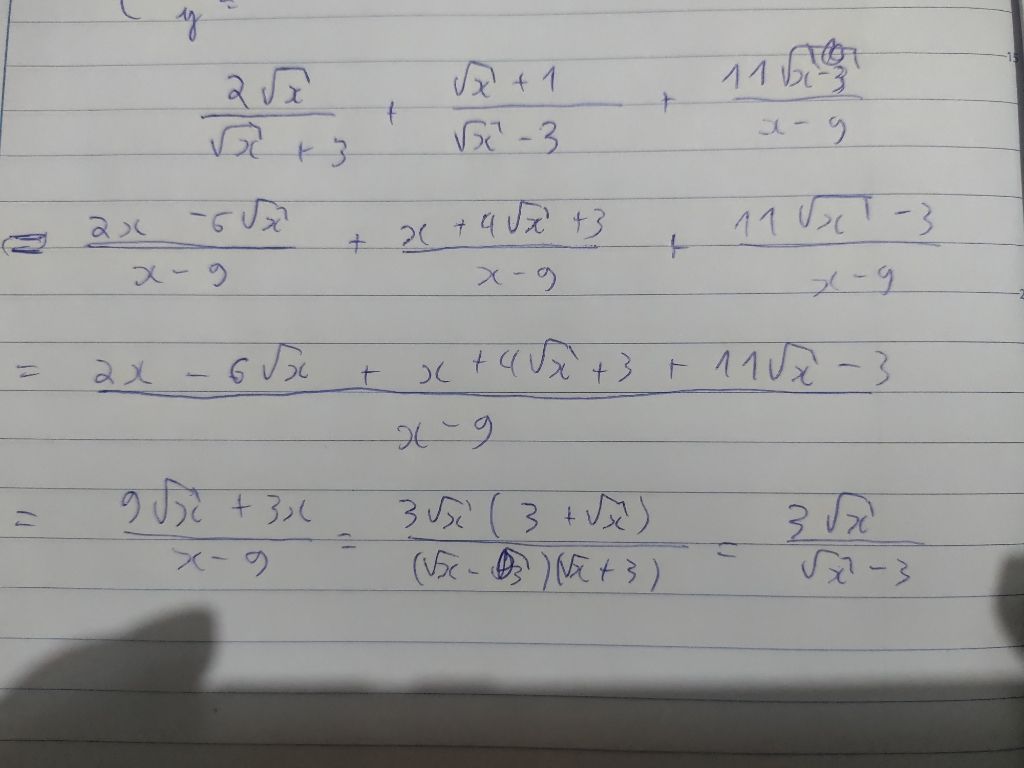 y =
2√x / (√x + 3) + (√x + 1) / (√x - 3) + (11√x - 3) / (x - 9)
= (2x - 6√x) / (x - 9) + (x + 4√x + 3) / (x - 9) + (11√x - 3) / (x - 9)
= (2x - 6√x + x + 4√x + 3 + 11√x - 3) / (x - 9)
= (9√x + 3x) / (x - 9) = 3√x (3 + √x) / (√x - 3)(√x + 3) = 3√x / (√x - 3)